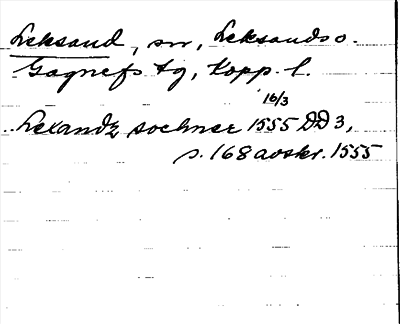 Leksand, sn, Leksands o.
Gagnefs tg, Kopp. l.
16/3
Lexandz sochner 1555 DD 3,
s. 168 avskr. 1555